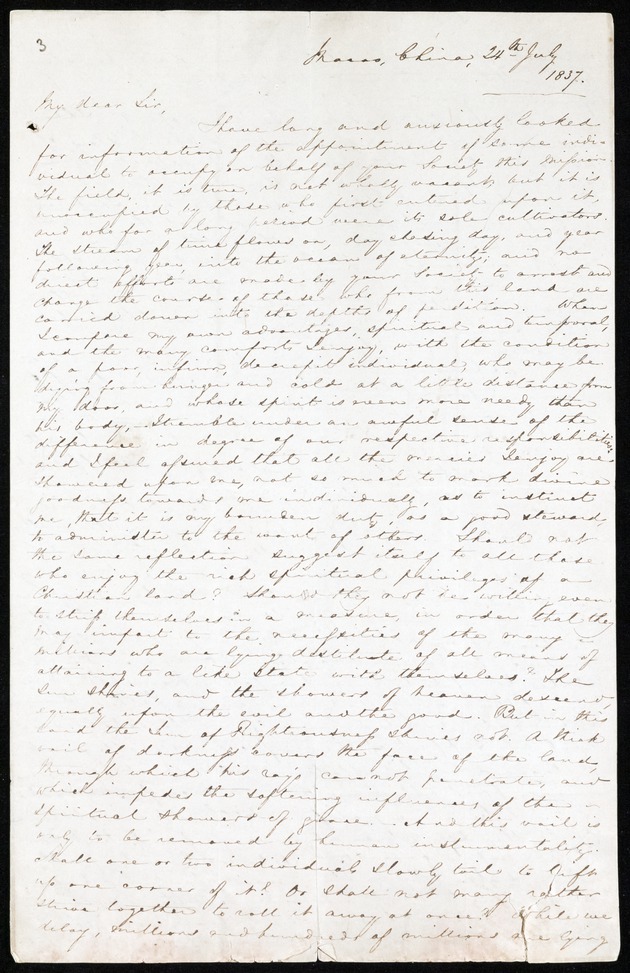 3
Macao, China, 24th July
1837.
My dear Sir,
I have long and anxiously looked
for information of the appointment of some indi-
vidual to occupy on behalf of your Society this mission.
The field, it is true, is not wholly vacant, but it is
unoccupied by those who first entered upon it,
and who for a long period were its sole cultivators.
The stream of time flows on, day chasing day, and year
following year, into the ocean of eternity; and no
direct efforts are made by your Society to arrest and
change the course of those who from this land are
carried down into the depths of perdition. When
I compare my own advantages, spiritual and temporal,
and the many comforts I enjoy, with the condition
of a poor, infirm, decrepit individual, who may be
dying from hunger and cold at a little distance from
my door, and whose spirit is even more needy than
his body,- I tremble under an aweful sense of the
difference in degree of our respective responsibilities:
and I feel assured that all the mercies I enjoy are
showered upon me, not so much to mark divine
goodness towards me individually, as to instruct
me, that it is my bounden duty, as a good steward,
to administer to the want of others. Should not
the same reflection suggest itself to all those
who enjoy the rich spiritual privileges of a
Christian land? Should they not be willing even
to strip themselves in a measure, in order that they
may impart to the necessities of the many
millions who are lying destitute of all means of
attaining to a like state with themselves? The
Sun shines, and the showers of heaven descend,
equally upon the evil and the good. But in this
land the Sun of Righteousness shines not. A thick
vail of darkness covers the face of the land,
through which his rays cannot penetrate, and
which impedes the softening influences of the
spiritual showers of grace. And this vail is
only to be removed by human instrumentality.
Shall one or two individuals slowly toil to lift
up one corner of it? Or shall not many rather
strive together to roll it away at once? While we
delay, millions and hundreds of millions are lying